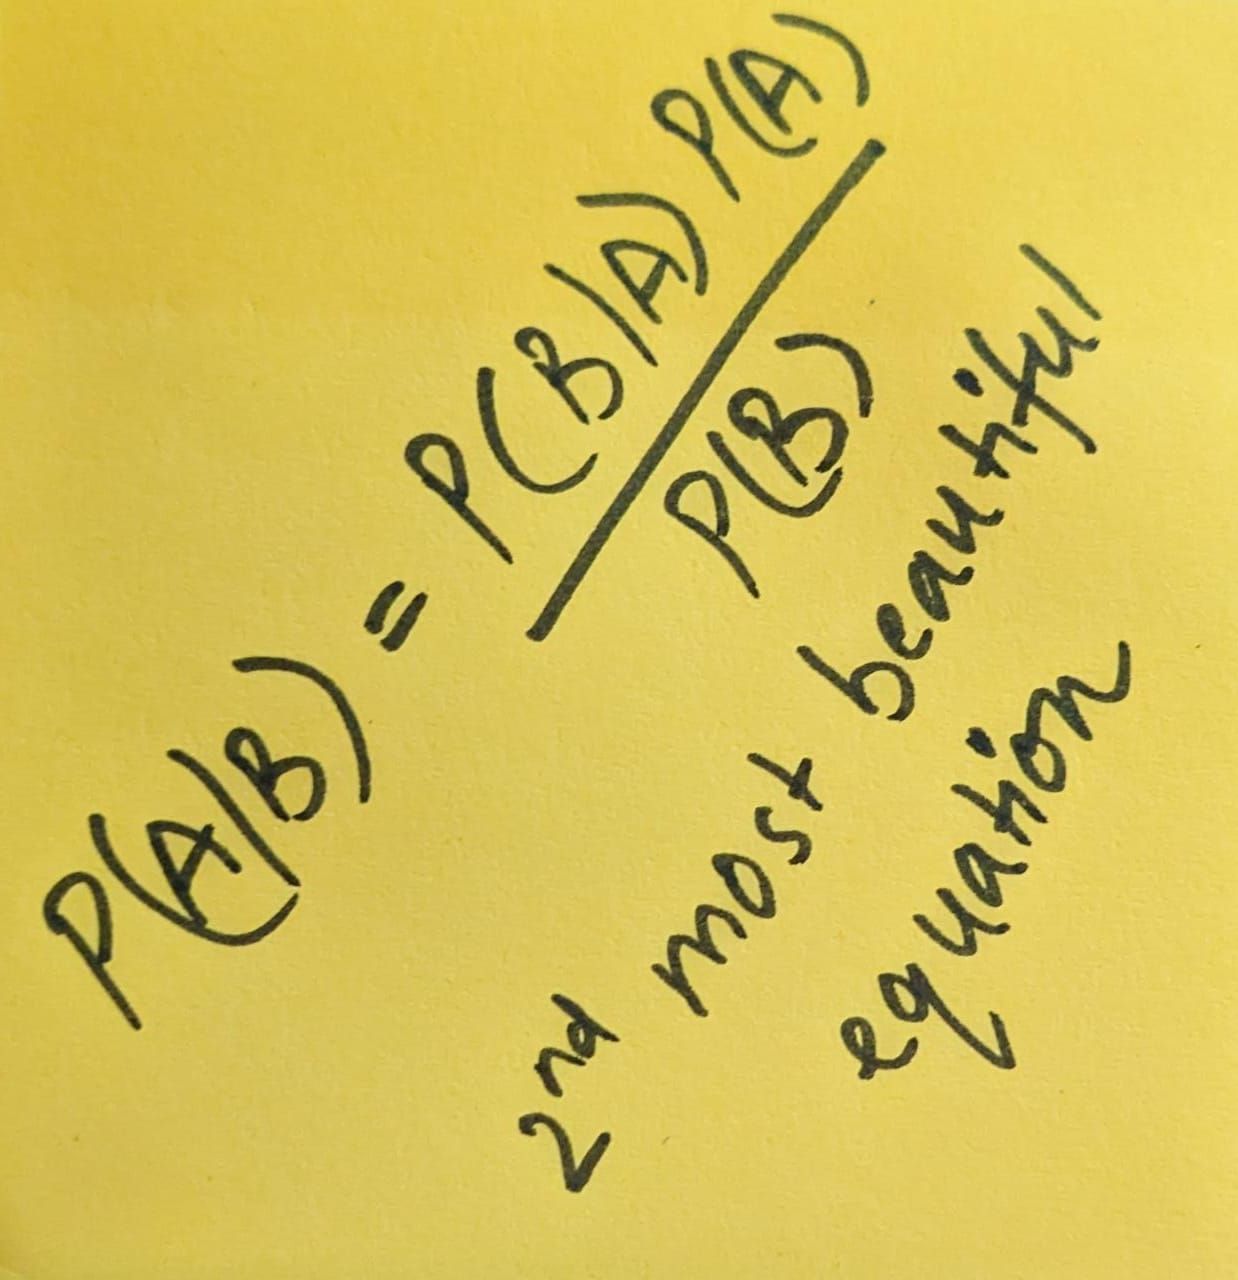 P(A|B) = P(B|A) P(A)
P(B)
2nd most beautiful
equation